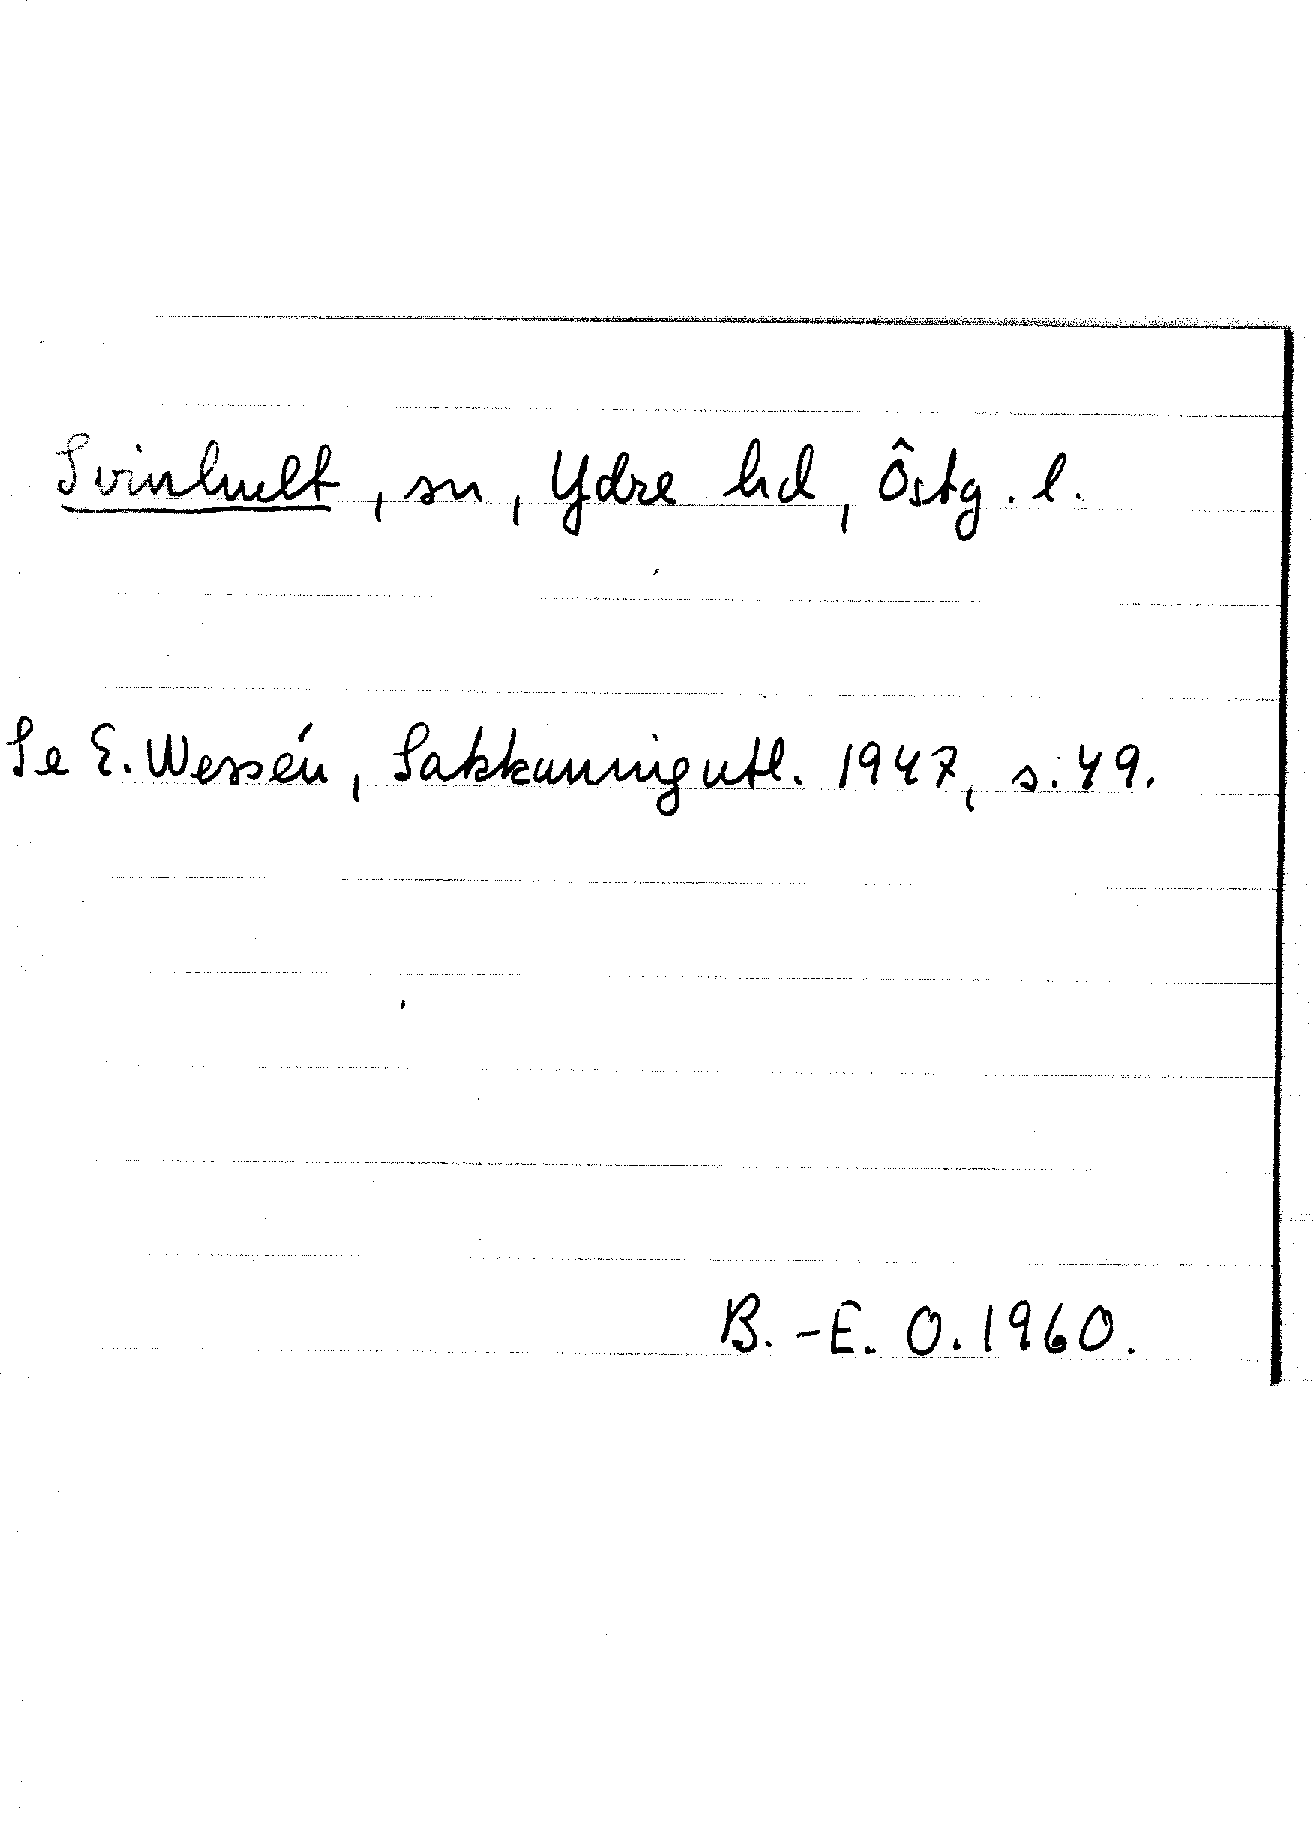 Svinhult, sn, Ydre hd, Östg. l.
Se E. Wessén, Sakkunnigutl. 1947, s. 49.
B.-E. O. 1960.